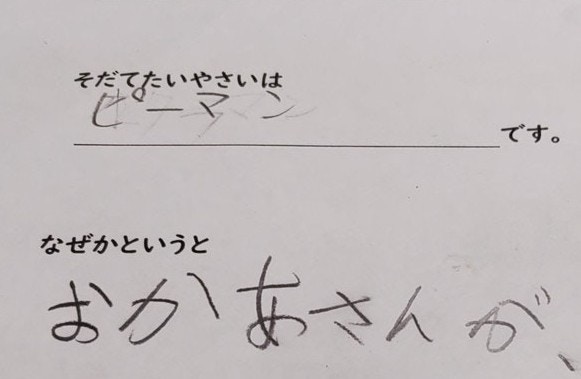 そだてたいやさいは
ピーマン
です。
なぜかというと
おかあさんが、